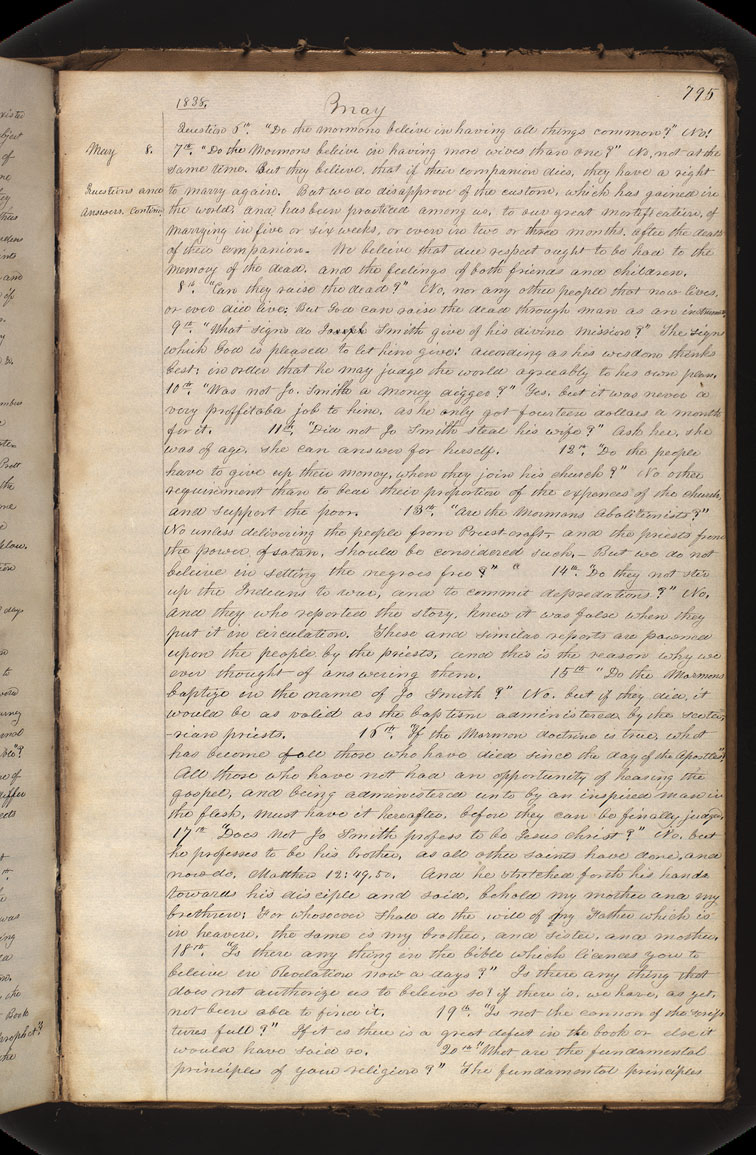 795
1838,
May
Question 6th. "Do the mormons beleive in having all things common?" No!
May 8. 7th. "Do the Mormons believe in having more wives than one?" No, not at the
same time. But they believe, that if their companion dies, they have a right
Questions and to marry again. But we do disapprove of the custom, which has gained in
answers. contin. the world, and has been practised among us, to our great mortification, of
marrying in five or six weeks, or even in two or three months, after the death
of their companion. We believe that due respect ought to be had to the
memory of the dead, and the feelings of both friends and children.
8th. "Can they raise the dead?" No, nor any other people that now lives,
or ever did live: But God can raise the dead through man as an instrument.
9th. "What signs do Joseph Smith give of his divine mission?" The signs
which God is pleased to let him give: according as his wisdom thinks
best: in order that he may judge the world agreeably to his own plan.
10th. "Was not Jo. Smith a money digger?" Yes, but it was never a
very proffitable job to him, as he only got fourteen dollars a month
for it. 11th, "Did not Jo Smith steal his wife?" Ask her, she
was of age, she can answer for herself. 12th. "Do the people
have to give up their money, when they join his church?" No other
requirement than to bear their proportion of the expences of the church,
and support the poor. 13th. "Are the Mormons abolitionists?"
No unless delivering the people from Priest-craft, and the priests from
the power of satan, should be considered such,- But we do not
beleive in setting the negroes free?" 14th. "Do they not stir
up the Indians to war, and to commit depredations?" No,
and they who reported the story, knew it was false when they
put it in circulation. These and similar reports are pawned
upon the people by the priests, and this is the reason why we
ever thought of answering them. 15th "Do the Mormons
baptize in the name of Jo Smith?" No, but if they did, it
would be as valid as the baptism administered by the secta-
-rian priests. 16th. "If the Mormon doctrine is true, what
has become of all those who have died since the day of the Apostles"?
All those who have not had an opportunity of hearing the
gospel, and being administered unto by an inspired man in
the flesh, must have it hereafter, before they can be finally judged,
17th "Does not Jo Smith profess to be Jesus christ?" No, but
he professes to be his brother, as all other saints have done, and
now do, Matthew 12:49,50, And he stretched forth his hands
towards his disciple and said, behold my mother and my
brethren: For whosoever shall do the will of my Father which is
in heaven, the same is my brother, and sister, and mother,
18th. "Is there any thing in the bible which licences you to
beleive in Revelation now a days?" Is there any thing that
does not authorize us to beleive so? if there is, we have, as yet,
not been able to find it. 19th. "Is not the cannon of the scrip-
tures full?" If it is there is a great defect in the book or else it
would have said so. 20th "What are the fundamental
principles of your religion?" The fundamental principles